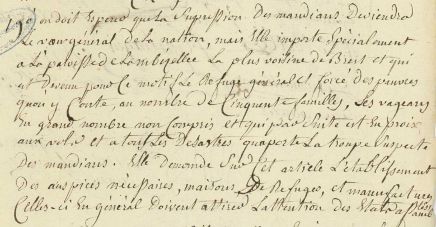 on doit Esperer que la Supression Des mandians Deviendra
Le voeu général de la nation, mais Elle importe Spécialement
a La paroisse de Lambezellec La plus voisine de Brest et qui
est Devenu pour Ce motif Le Refuge général et forcé des pauvres
quon y Conte, au nombre de Cinquente familles, Les vagans
En grand nombre non Compris et qui par Suite est En proix
aux vols et a tout Les Desastres quaporte La troupe Suspecte
Des mandians. Elle Demande Sur Cet article L'établissement
Des auspices nécessaires, maisons De Refuges, et manufactures
Celles-ci En général Doivent attirer Lattention des Etats